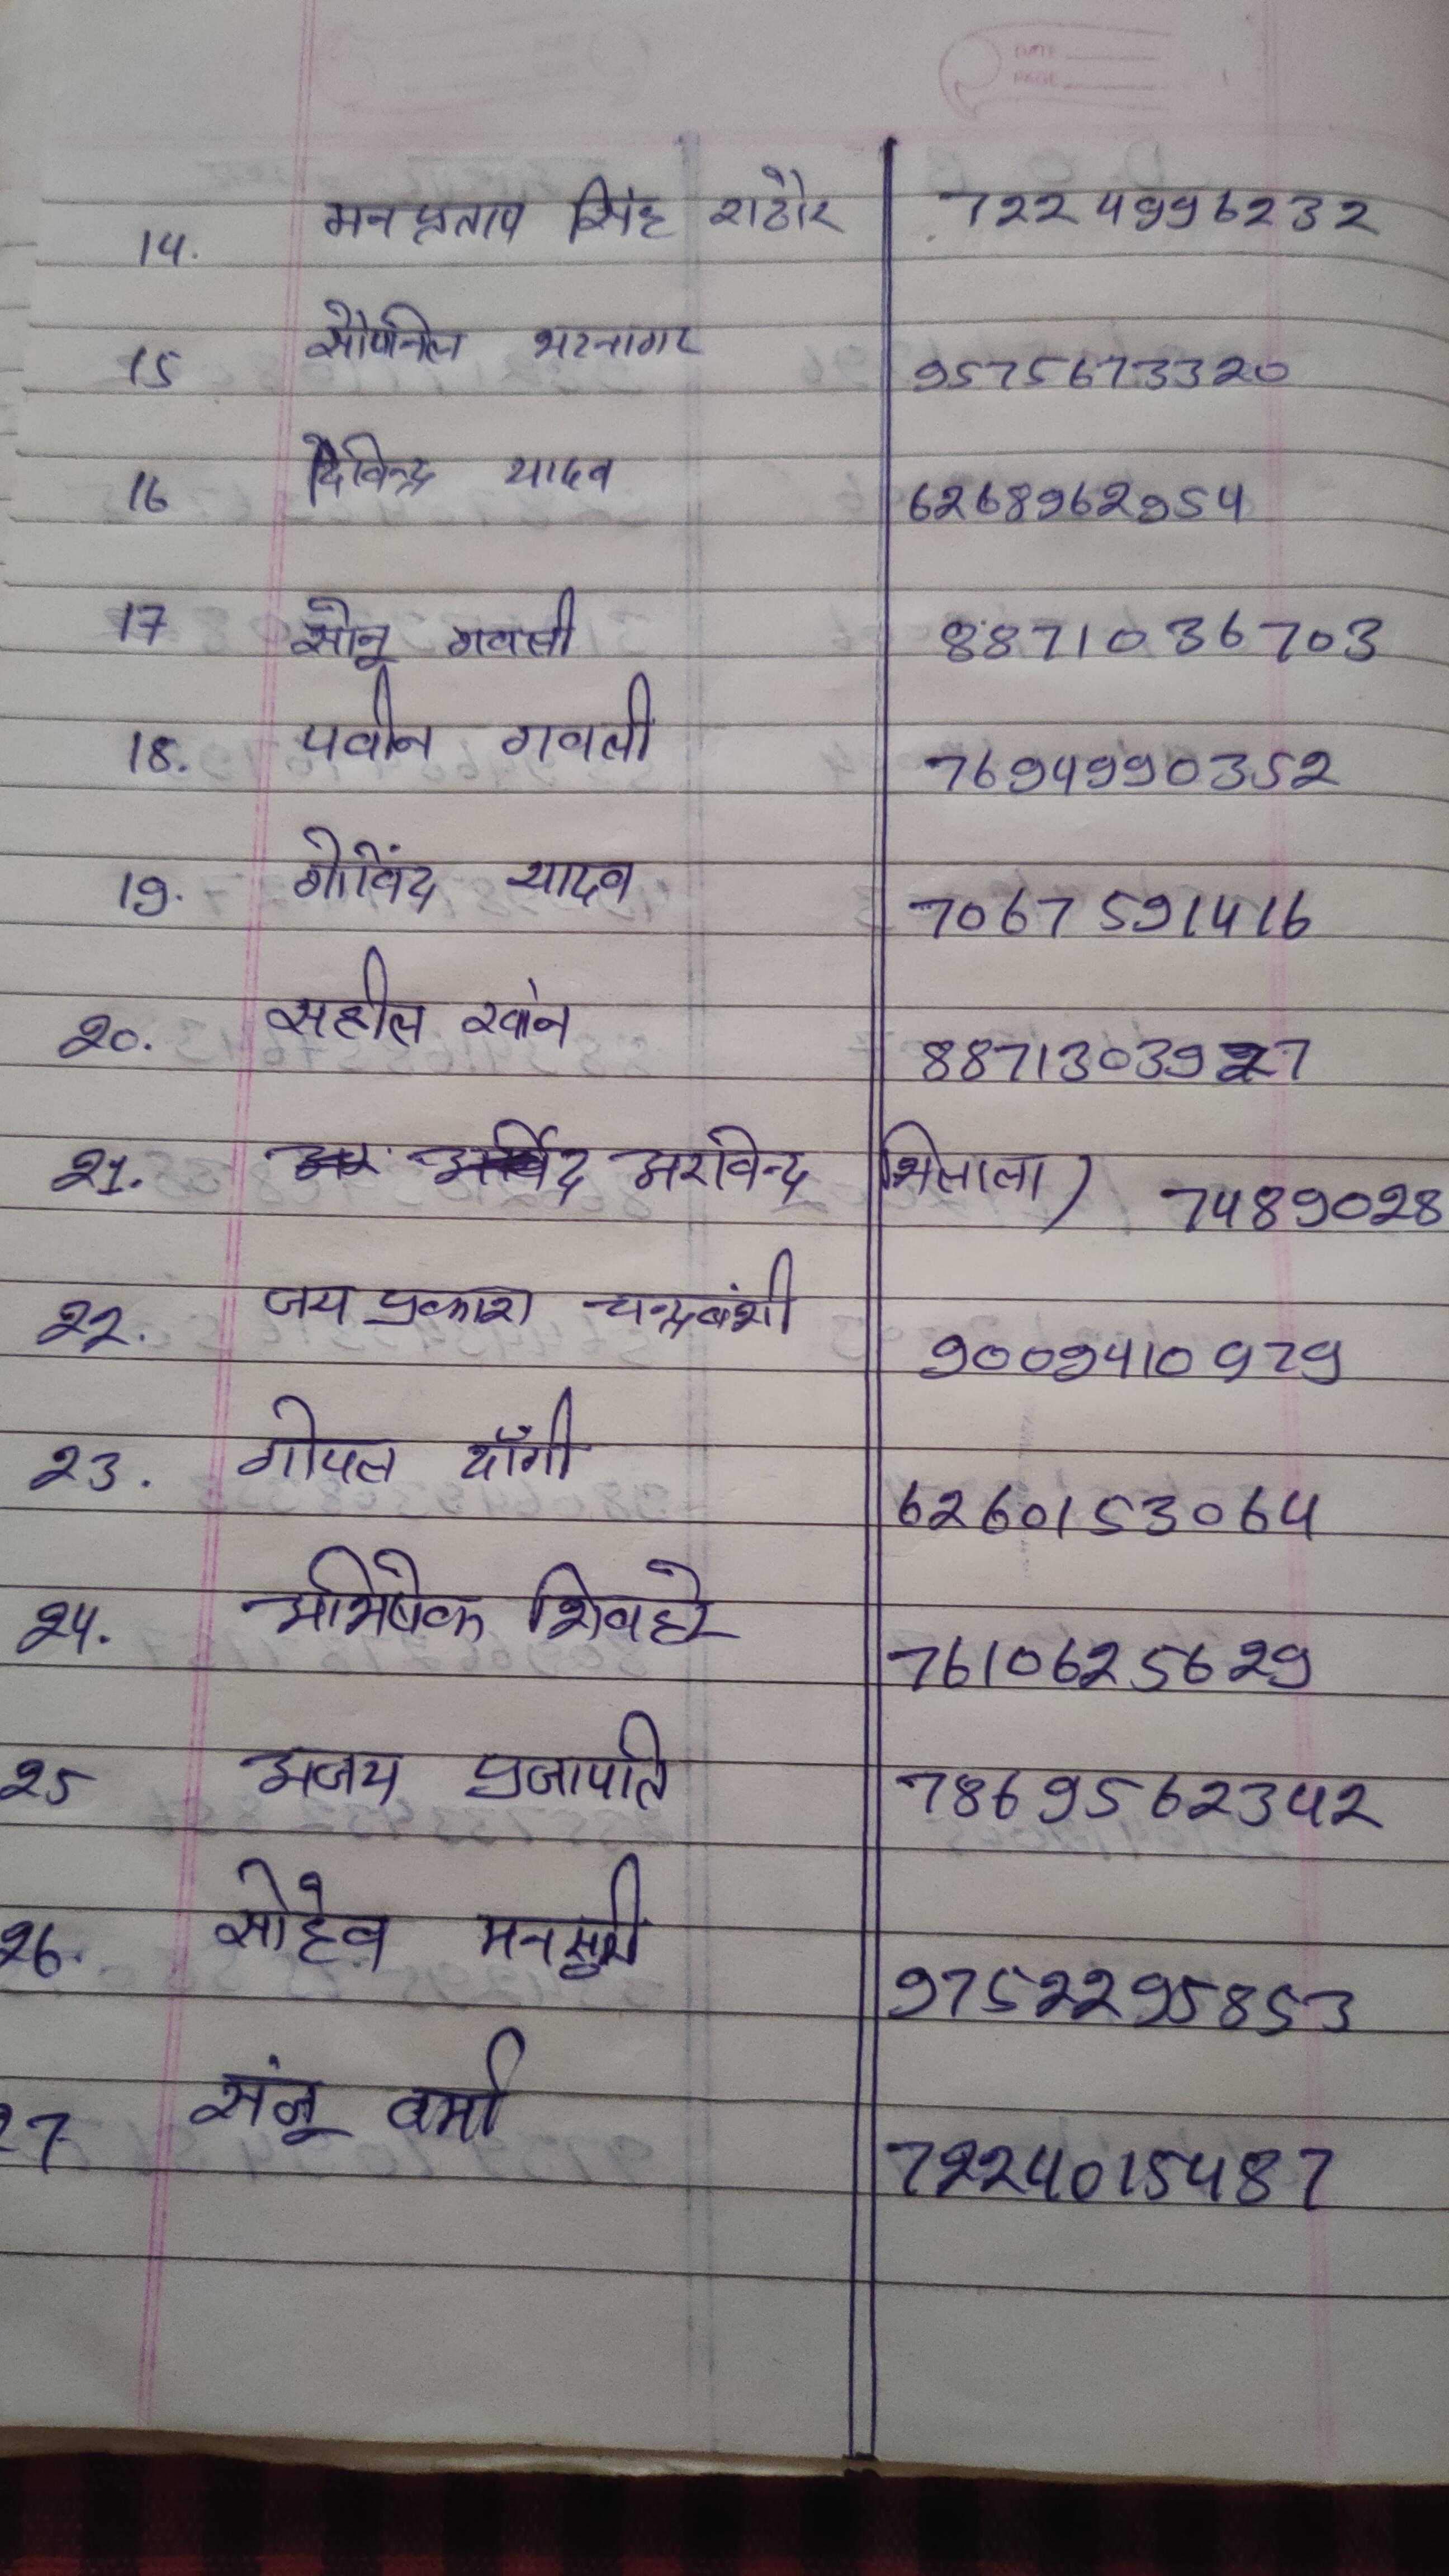 14. मनप्रताप सिंह राठौर 7224996232
15 सौपनिल भटनागर 9575673320
16 देविन्द्र यादव 6268962954
17 सोनू गवली 8871036703
18. पवीन गवली 7694990352
19. गोविंद यादव 7067591416
20. सहील खांन 8871303927
21. अरविन्द भिलाला) 7489028
22. जय प्रकाश चन्द्रबंशी 9009410979
23. गोपल याँगी 6260153064
24. अभिषेक शिवहरे 7610625629
25 अजय प्रजापति 7869562342
26. सोहेब मनसुरी 9752295853
27 संजू वर्मा 7224015487